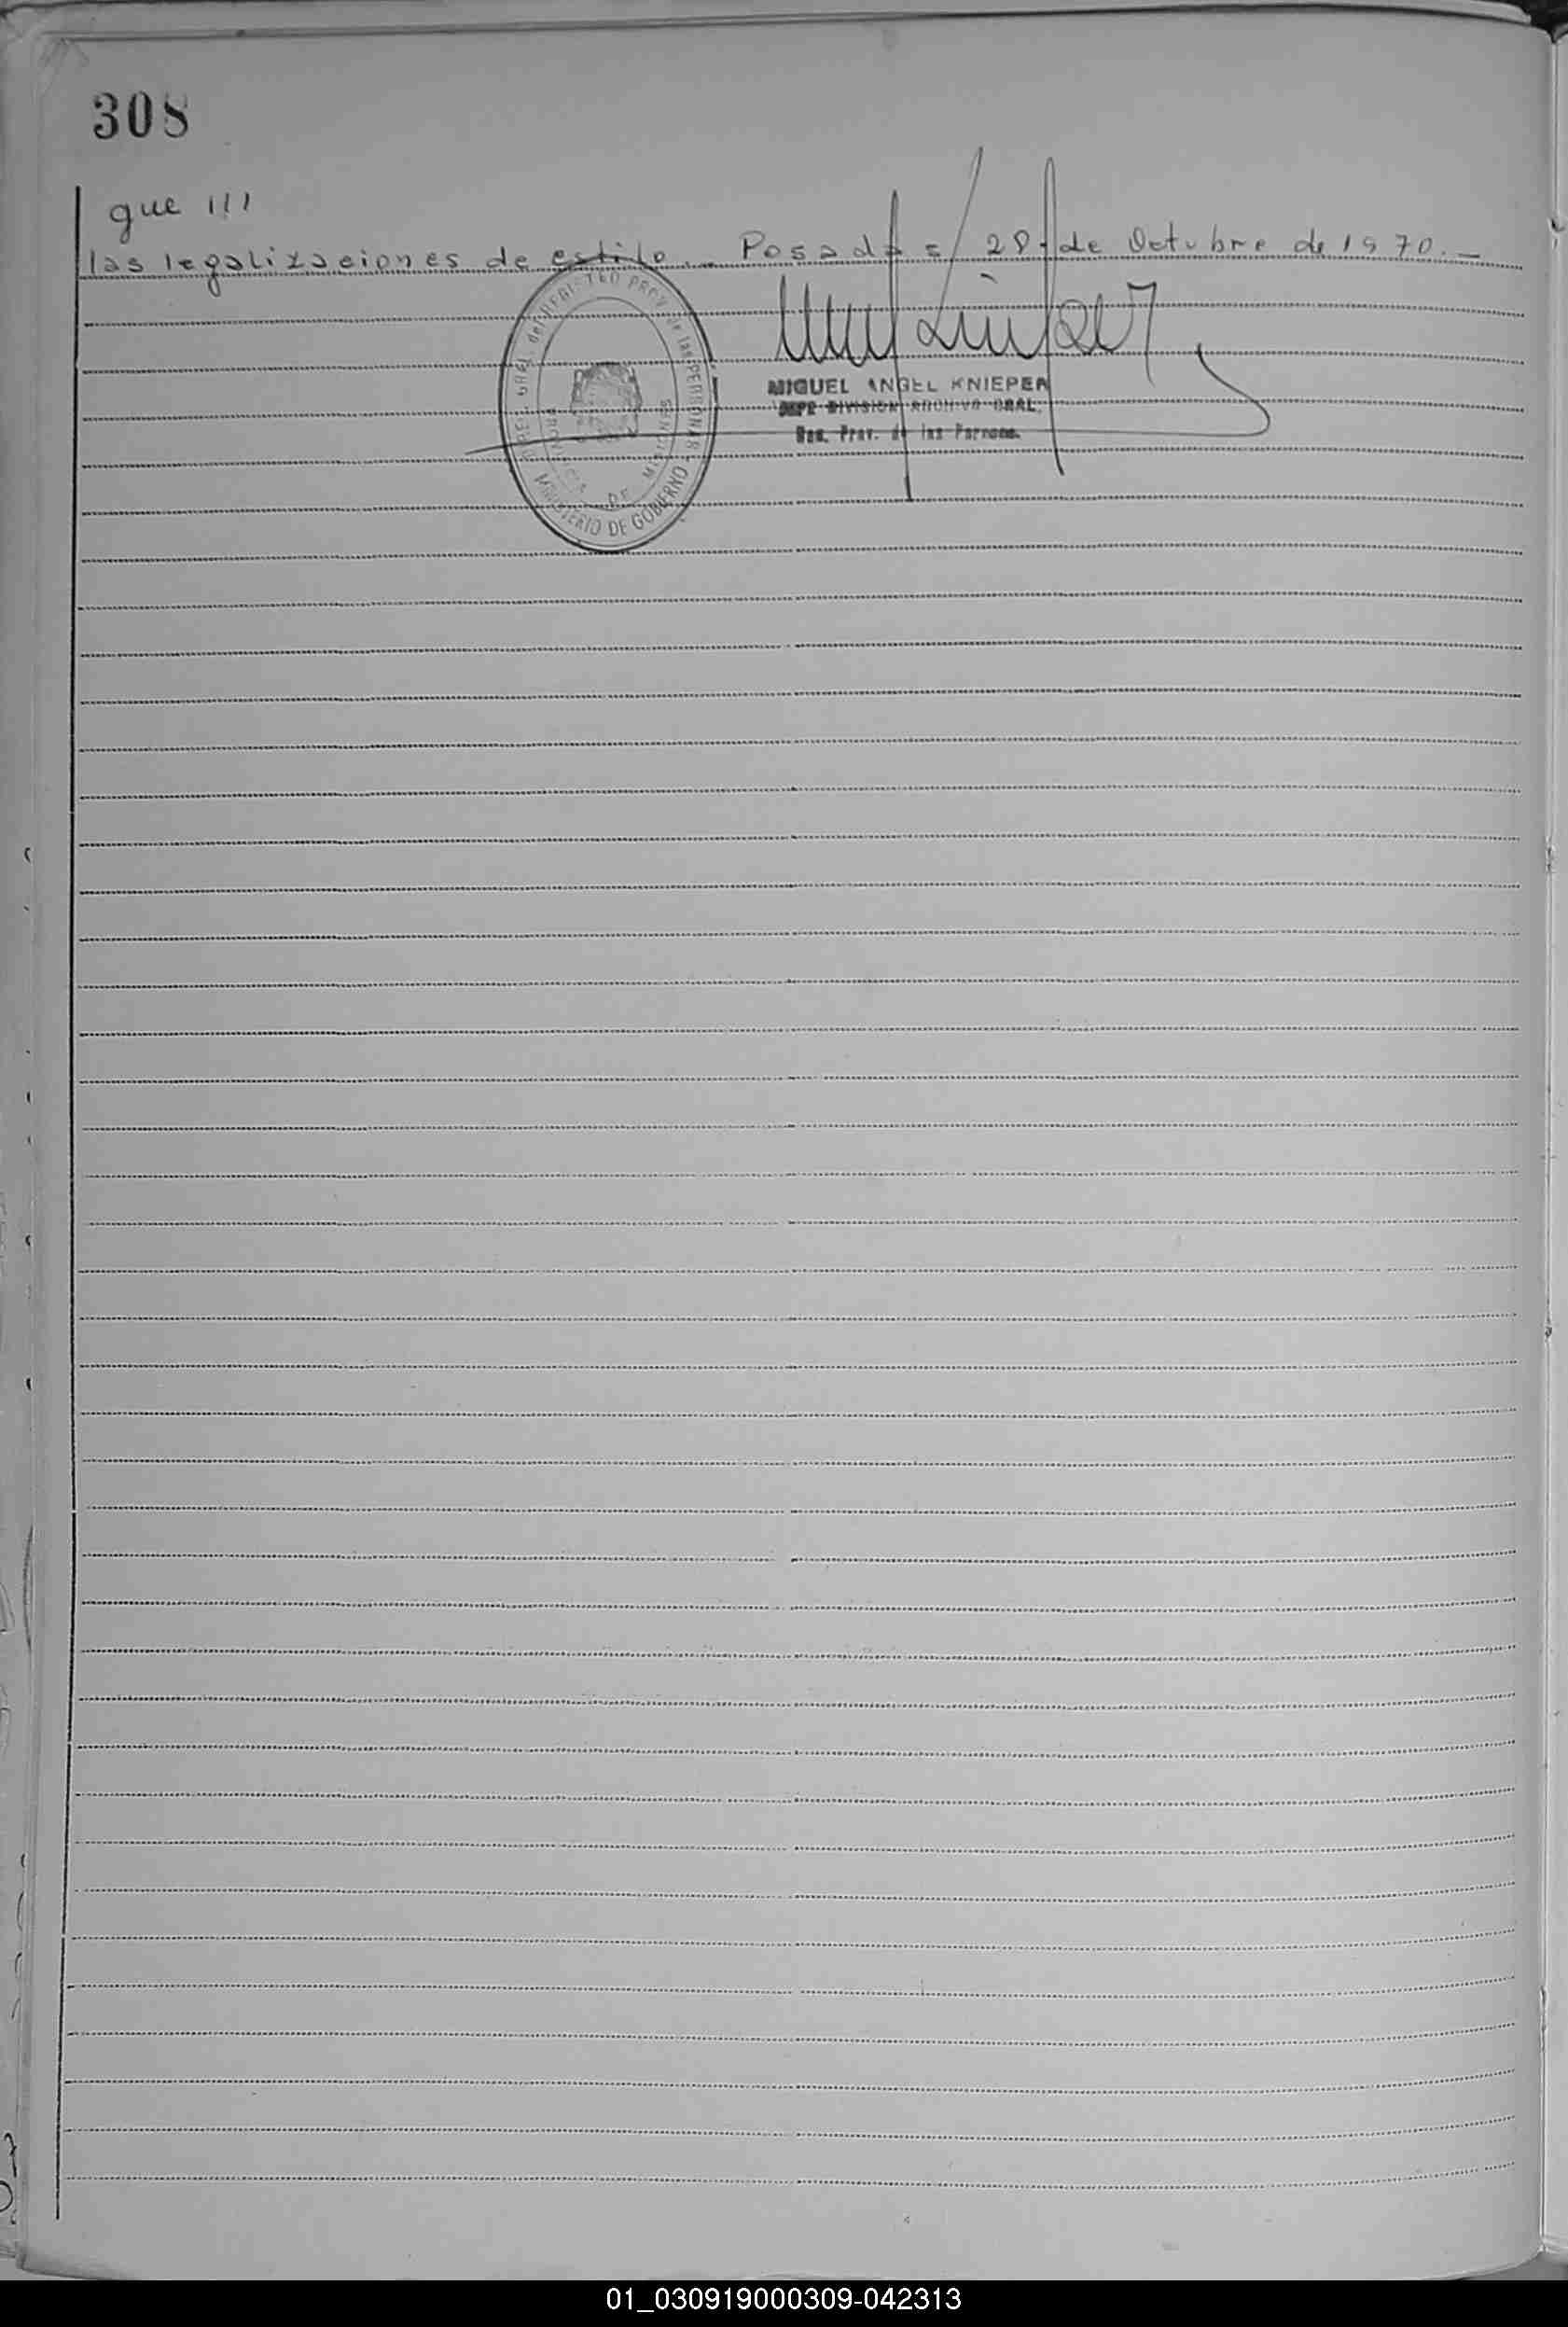 308
que ///
las legalizaciones de estilo.- Posadas, 28 de Octubre de 1970.-
MIGUEL ANGEL KNIEPER
JEFE DIVISION ARCHIVO GRAL.
Reg. Prov. de las Personas.
DIREC. GRAL. del REGISTRO PROV. de las PERSONAS
MINISTERIO DE GOBIERNO
PROVINCIA DE MISIONES
01_030919000309-042313